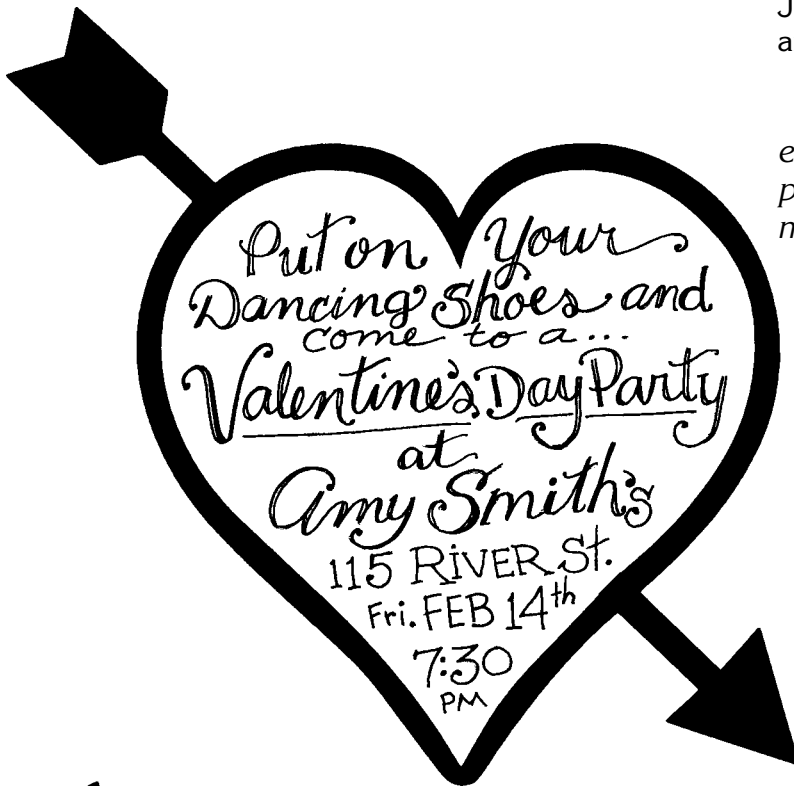 Put on Your
Dancing Shoes and
come to a...
Valentine's Day Party
at
Amy Smith's
115 RiVER St.
Fri. FEB 14th
7:30
PM